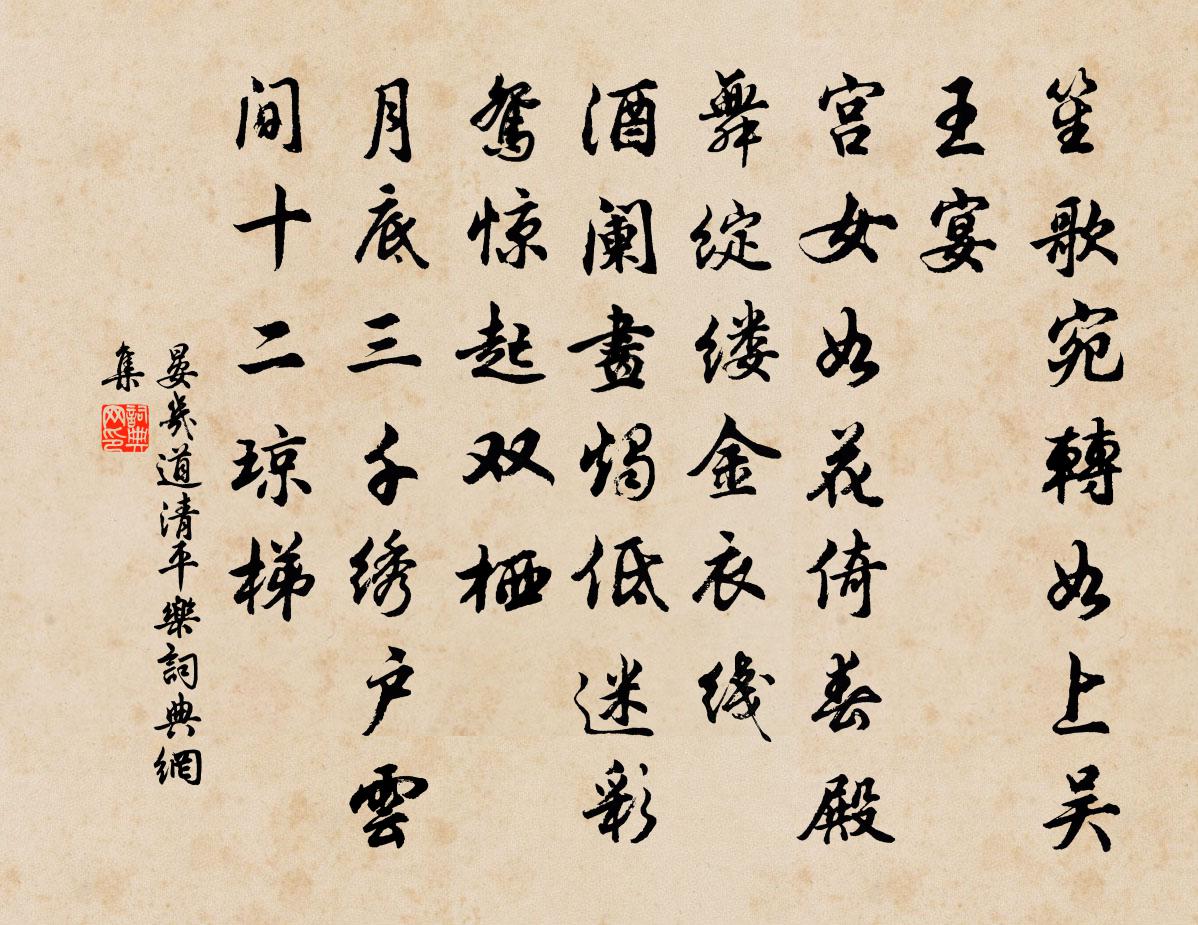 笙歌宛轉如上吴
王宴
宫女如花倚春殿
舞綻缕金衣线
酒阑畫燭低迷彩
鸳惊起双栖
月底三千绣户雲
间十二琼梯
晏幾道清平樂詞典網
集
詞典网印